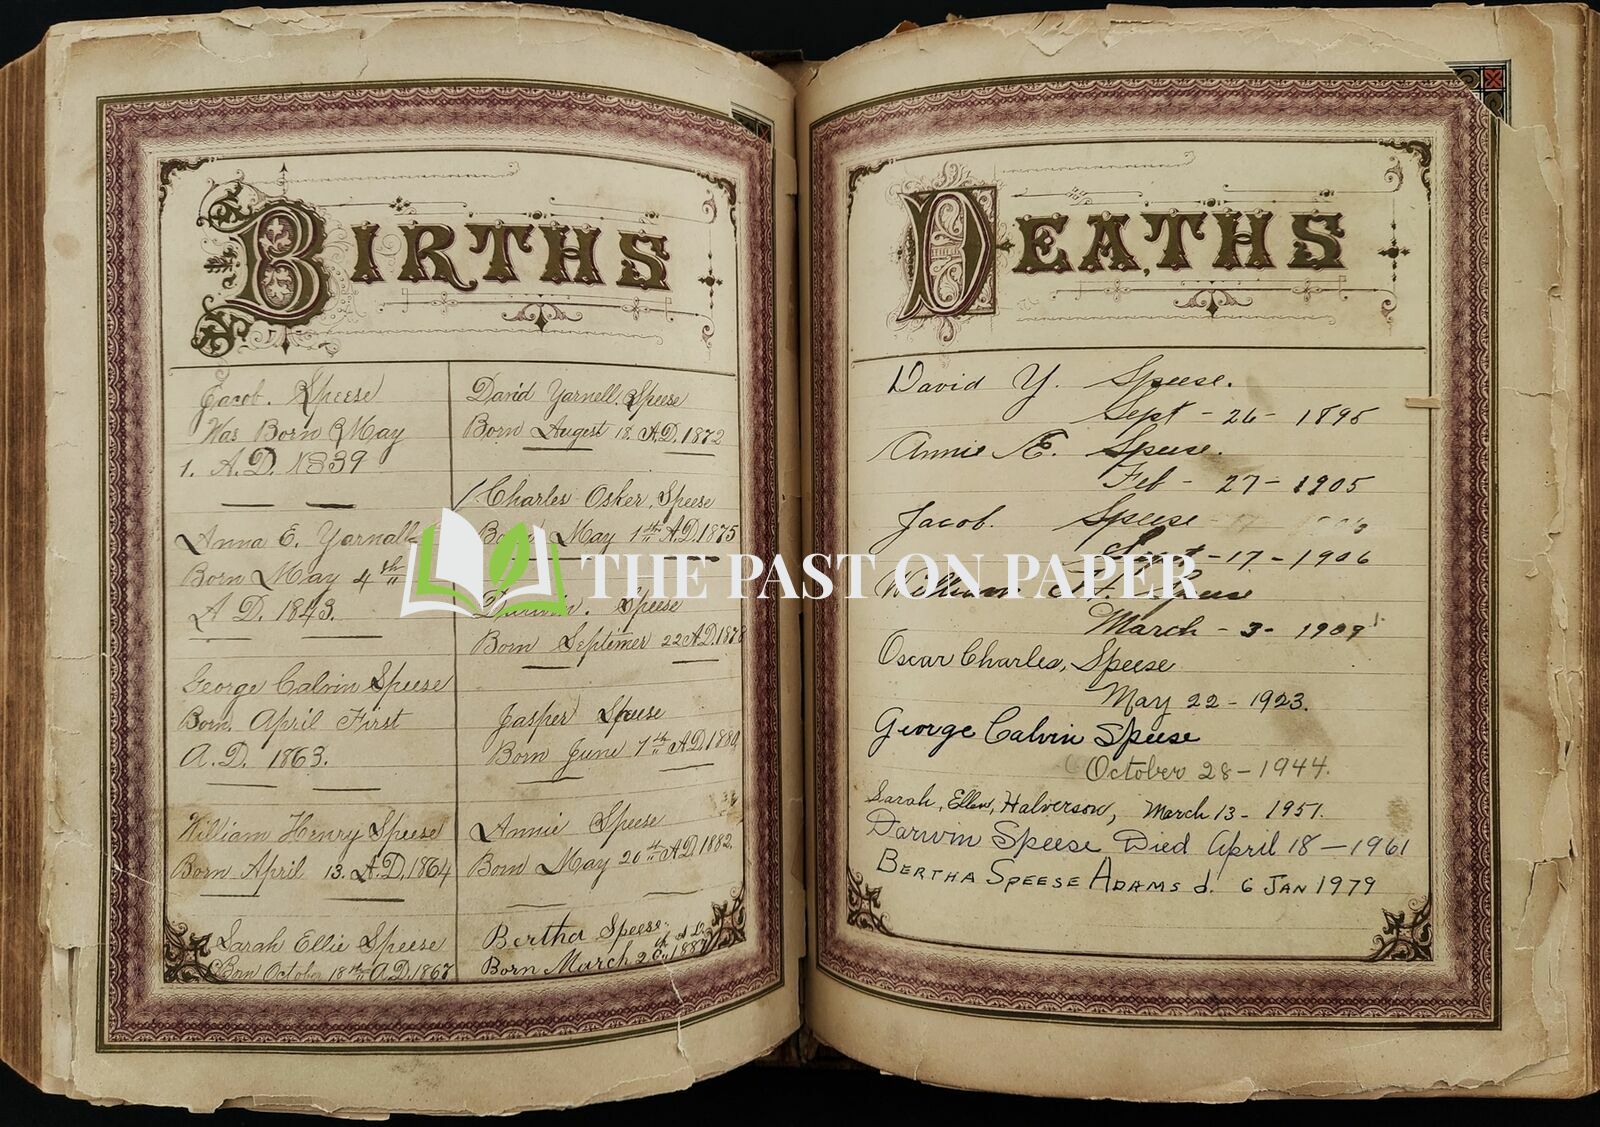 BIRTHS
Jacob. Speese
Was Born May
1. A.D. 1839
Anna E. Yarnall
Born May 4th
A D. 1843.
George Calvin Speese
Born April First
A.D. 1863.
William Henry Speese
Born April 13. A.D. 1864
Sarah Ellie Speese
Born October 18th A.D. 1867
David Yarnell. Speese
Born Augest 18. A.D. 1872
Charles Osker. Speese
Born May 1st A.D. 1875
Darwin. Speese
Born Septimer 22 A.D. 1878
Jasper Speese
Born June 7th A.D. 1880
Annie Speese
Born May 26th A.D. 1882
Bertha Speese.
Born March 1887
THE PAST ON PAPER
DEATHS
David Y. Speese.
Sept - 26 - 1895
Annie E. Speese.
Feb - 27 - 1905
Jacob. Speese
Sept - 17 - 1906
William H. Speese
March - 3 - 1909
Oscar Charles, Speese
May 22 - 1923.
George Calvin Speese
October 28 - 1944.
Sarah, Ellen, Halverson, March 13 - 1951.
Darwin Speese Died April 18 - 1961
BERTHA SPEESE ADAMS d. 6 JAN 1979